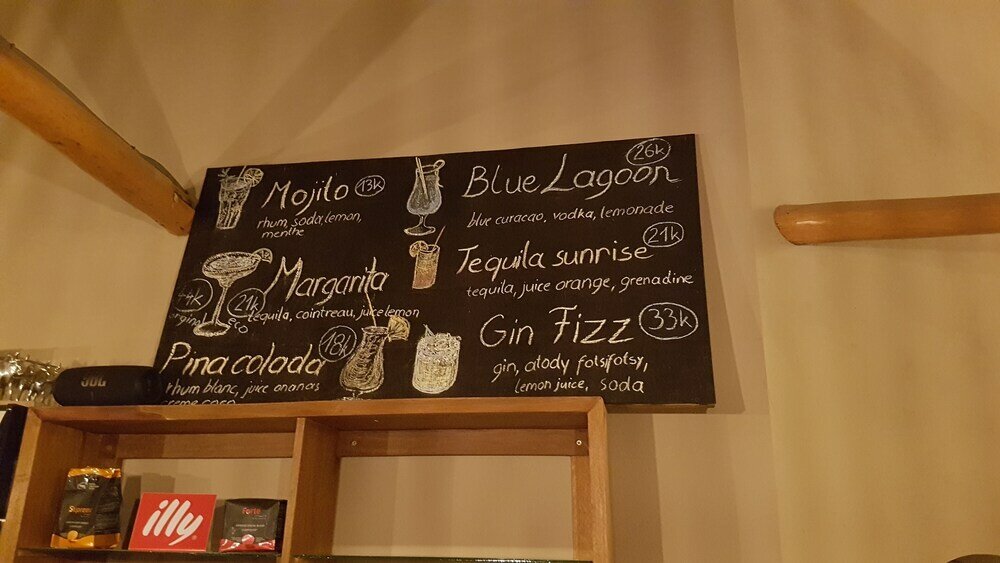 Mojito 13k
rhum, soda, lemon,
menthe
Margarita
44k
original
21k
eco
tequila, cointreau, juice lemon
Pina colada 18k
rhum blanc, juice ananas
creme coco
Blue Lagoon 26k
blue curacao, vodka, lemonade
Tequila sunrise 21k
tequila, juice orange, grenadine
Gin Fizz 33k
gin, atody fotsifotsy,
lemon juice, soda
JBL
illy
Forte